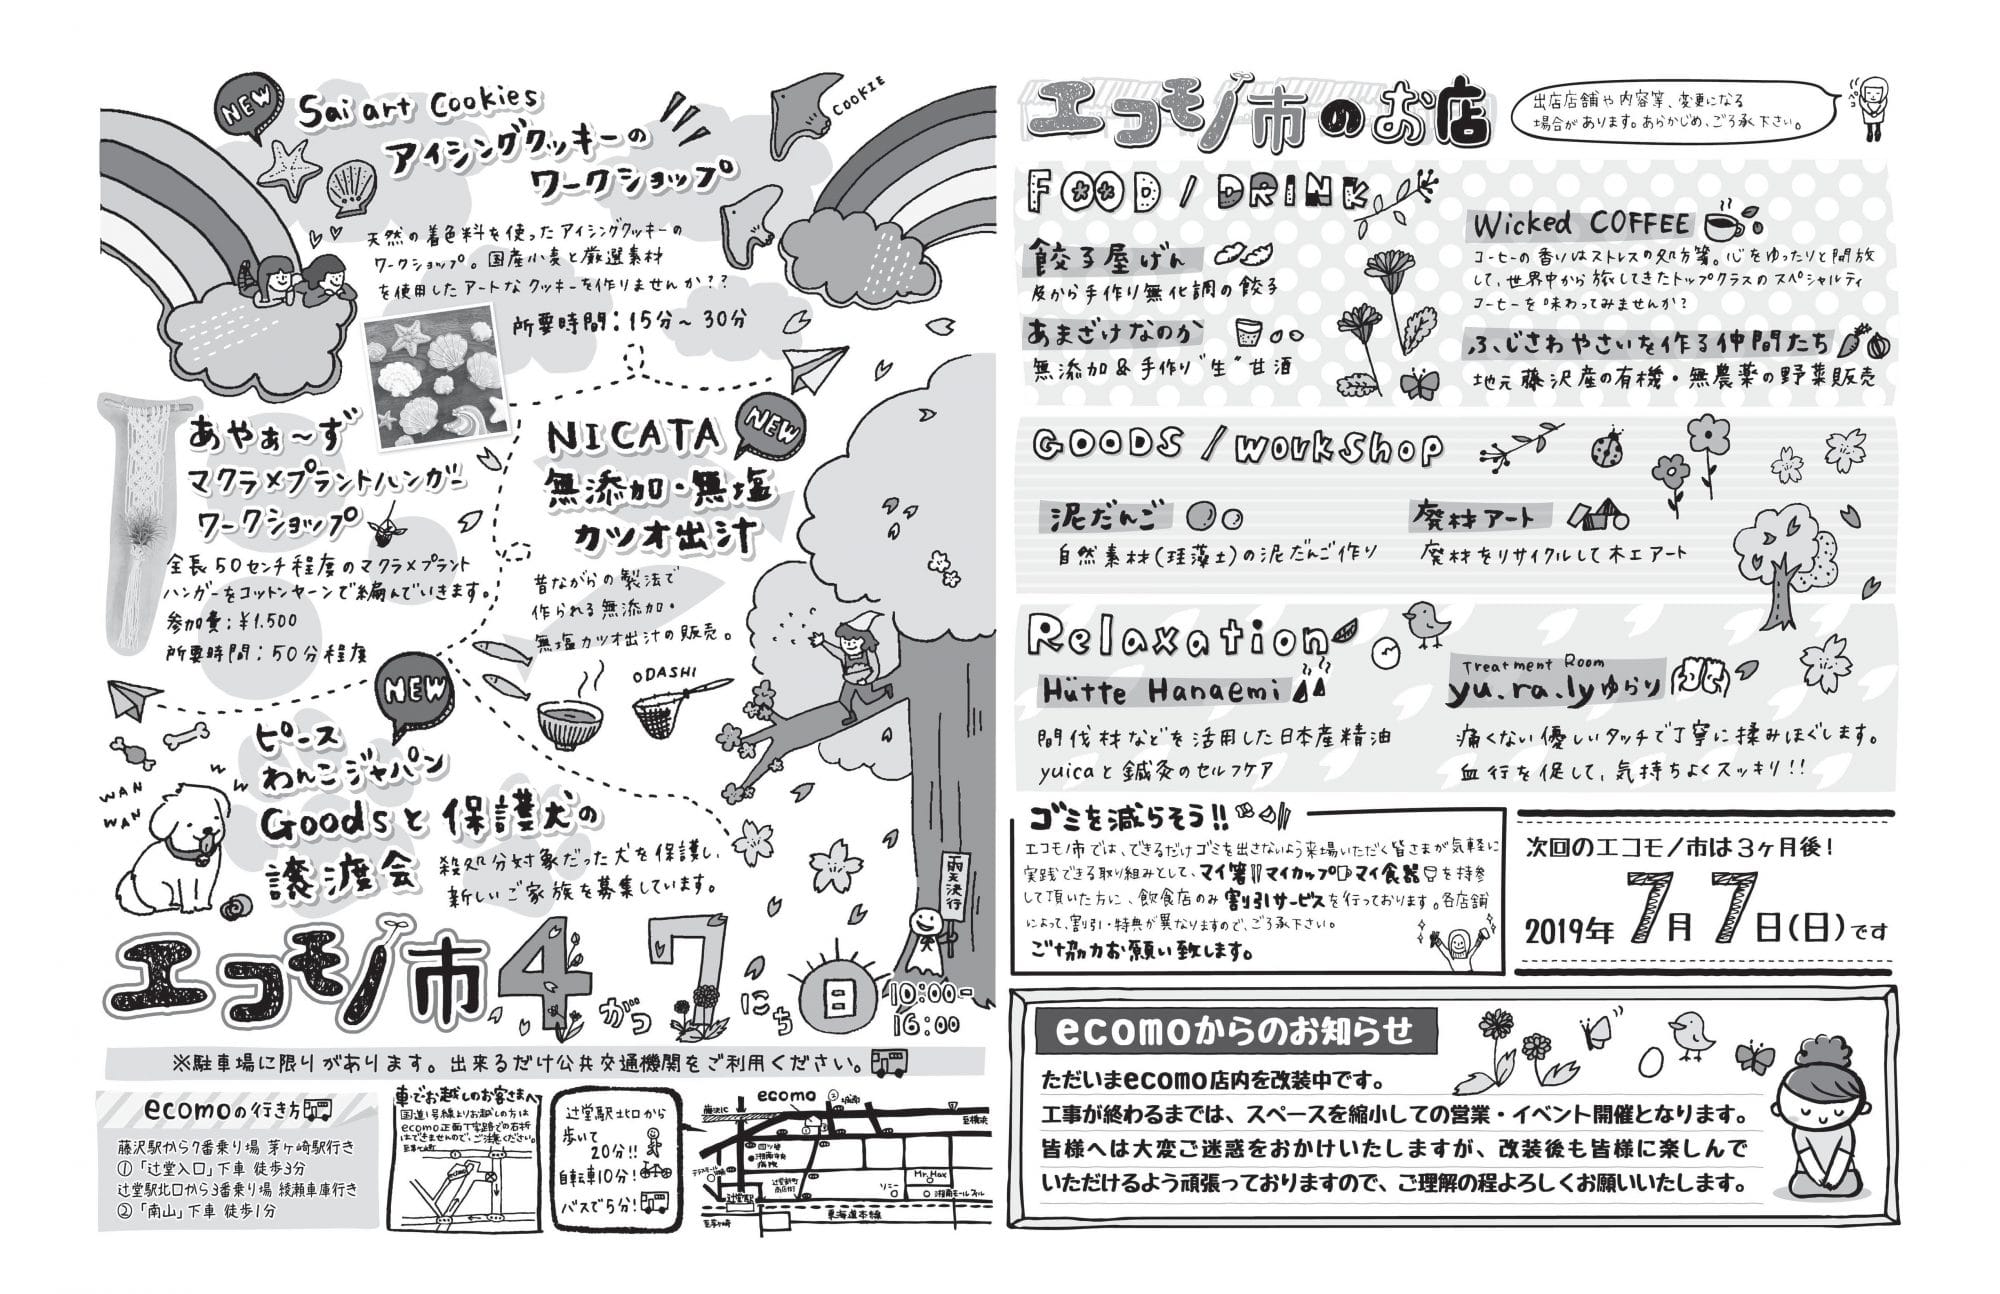 NEW
Sai art Cookies
アイシングクッキーの
ワークショップ
COOKIE
天然の着色料を使ったアイシングクッキーの
ワークショップ。国産小麦と厳選素材
を使用したアートなクッキーを作りませんか??
所要時間:15分〜30分
あやぁ〜ず
マクラメプラントハンガー
ワークショップ
全長50センチ程度のマクラメプラント
ハンガーをコットンヤーンで編んでいきます。
参加費:¥1.500
所要時間:50分程度
NEW
NICATA
無添加・無塩
カツオ出汁
昔ながらの製法で
作られる無添加・
無塩カツオ出汁の販売。
ODASHI
NEW
ピース
わんこジャパン
Goodsと保護犬の
譲渡会
WAN
WAN
殺処分対象だった犬を保護し、
新しいご家族を募集しています。
雨天決行
エコモノ市 4がつ7にち 日 10:00-
16:00
※駐車場に限りがあります。出来るだけ公共交通機関をご利用ください。
ecomoの行き方
藤沢駅から7番乗り場 茅ヶ崎駅行き
①「辻堂入口」下車 徒歩3分
辻堂駅北口から3番乗り場 綾瀬車庫行き
②「南山」下車 徒歩1分
車でお越しのお客さまへ
国道1号線よりお越しの方は
ecomo正面丁字路での右折
はできませんので、ご注意ください。
辻堂駅北口から
歩いて
20分!!
自転車10分!
バスで5分!
ecomo
藤沢IC
至横浜
湘南中央
病院
Mr.Max
ソニー
湘南モールフィル
辻堂駅
東海道本線
至茅ヶ崎
エコモノ市のお店
出店店舗や内容等、変更になる
場合があります。あらかじめ、ご了承下さい。
ペコ
FOOD / DRINK
餃子屋げん
皮から手作り無化調の餃子
あまざけなのか
無添加&手作り"生"甘酒
Wicked COFFEE
コーヒーの香りはストレスの処方箋。心をゆったりと開放
して、世界中から旅してきたトップクラスのスペシャルティ
コーヒーを味わってみませんか?
ふじさわやさいを作る仲間たち
地元藤沢産の有機・無農薬の野菜販売
GOODS / Workshop
泥だんご
自然素材(珪藻土)の泥だんご作り
廃材アート
廃材をリサイクルして木工アート
Relaxation
Hütte Hanaemi
間伐材などを活用した日本産精油
yuicaと鍼灸のセルフケア
Treatment Room
yu.ra.lyゆらり
痛くない優しいタッチで丁寧に揉みほぐします。
血行を促して、気持ちよくスッキリ!!
ゴミを減らそう!!
エコモノ市では、できるだけゴミを出さないよう来場いただく皆さまが気軽に
実践できる取り組みとして、マイ箸マイカップマイ食器を持参
して頂いた方に、飲食店のみ割引サービスを行っております。各店舗
によって、割引・特典が異なりますので、ご了承下さい。
ご協力お願い致します。
次回のエコモノ市は3ヶ月後!
2019年 7月 7日(日)です
ecomoからのお知らせ
ただいまecomo店内を改装中です。
工事が終わるまでは、スペースを縮小しての営業・イベント開催となります。
皆様へは大変ご迷惑をおかけいたしますが、改装後も皆様に楽しんで
いただけるよう頑張っておりますので、ご理解の程よろしくお願いいたします。